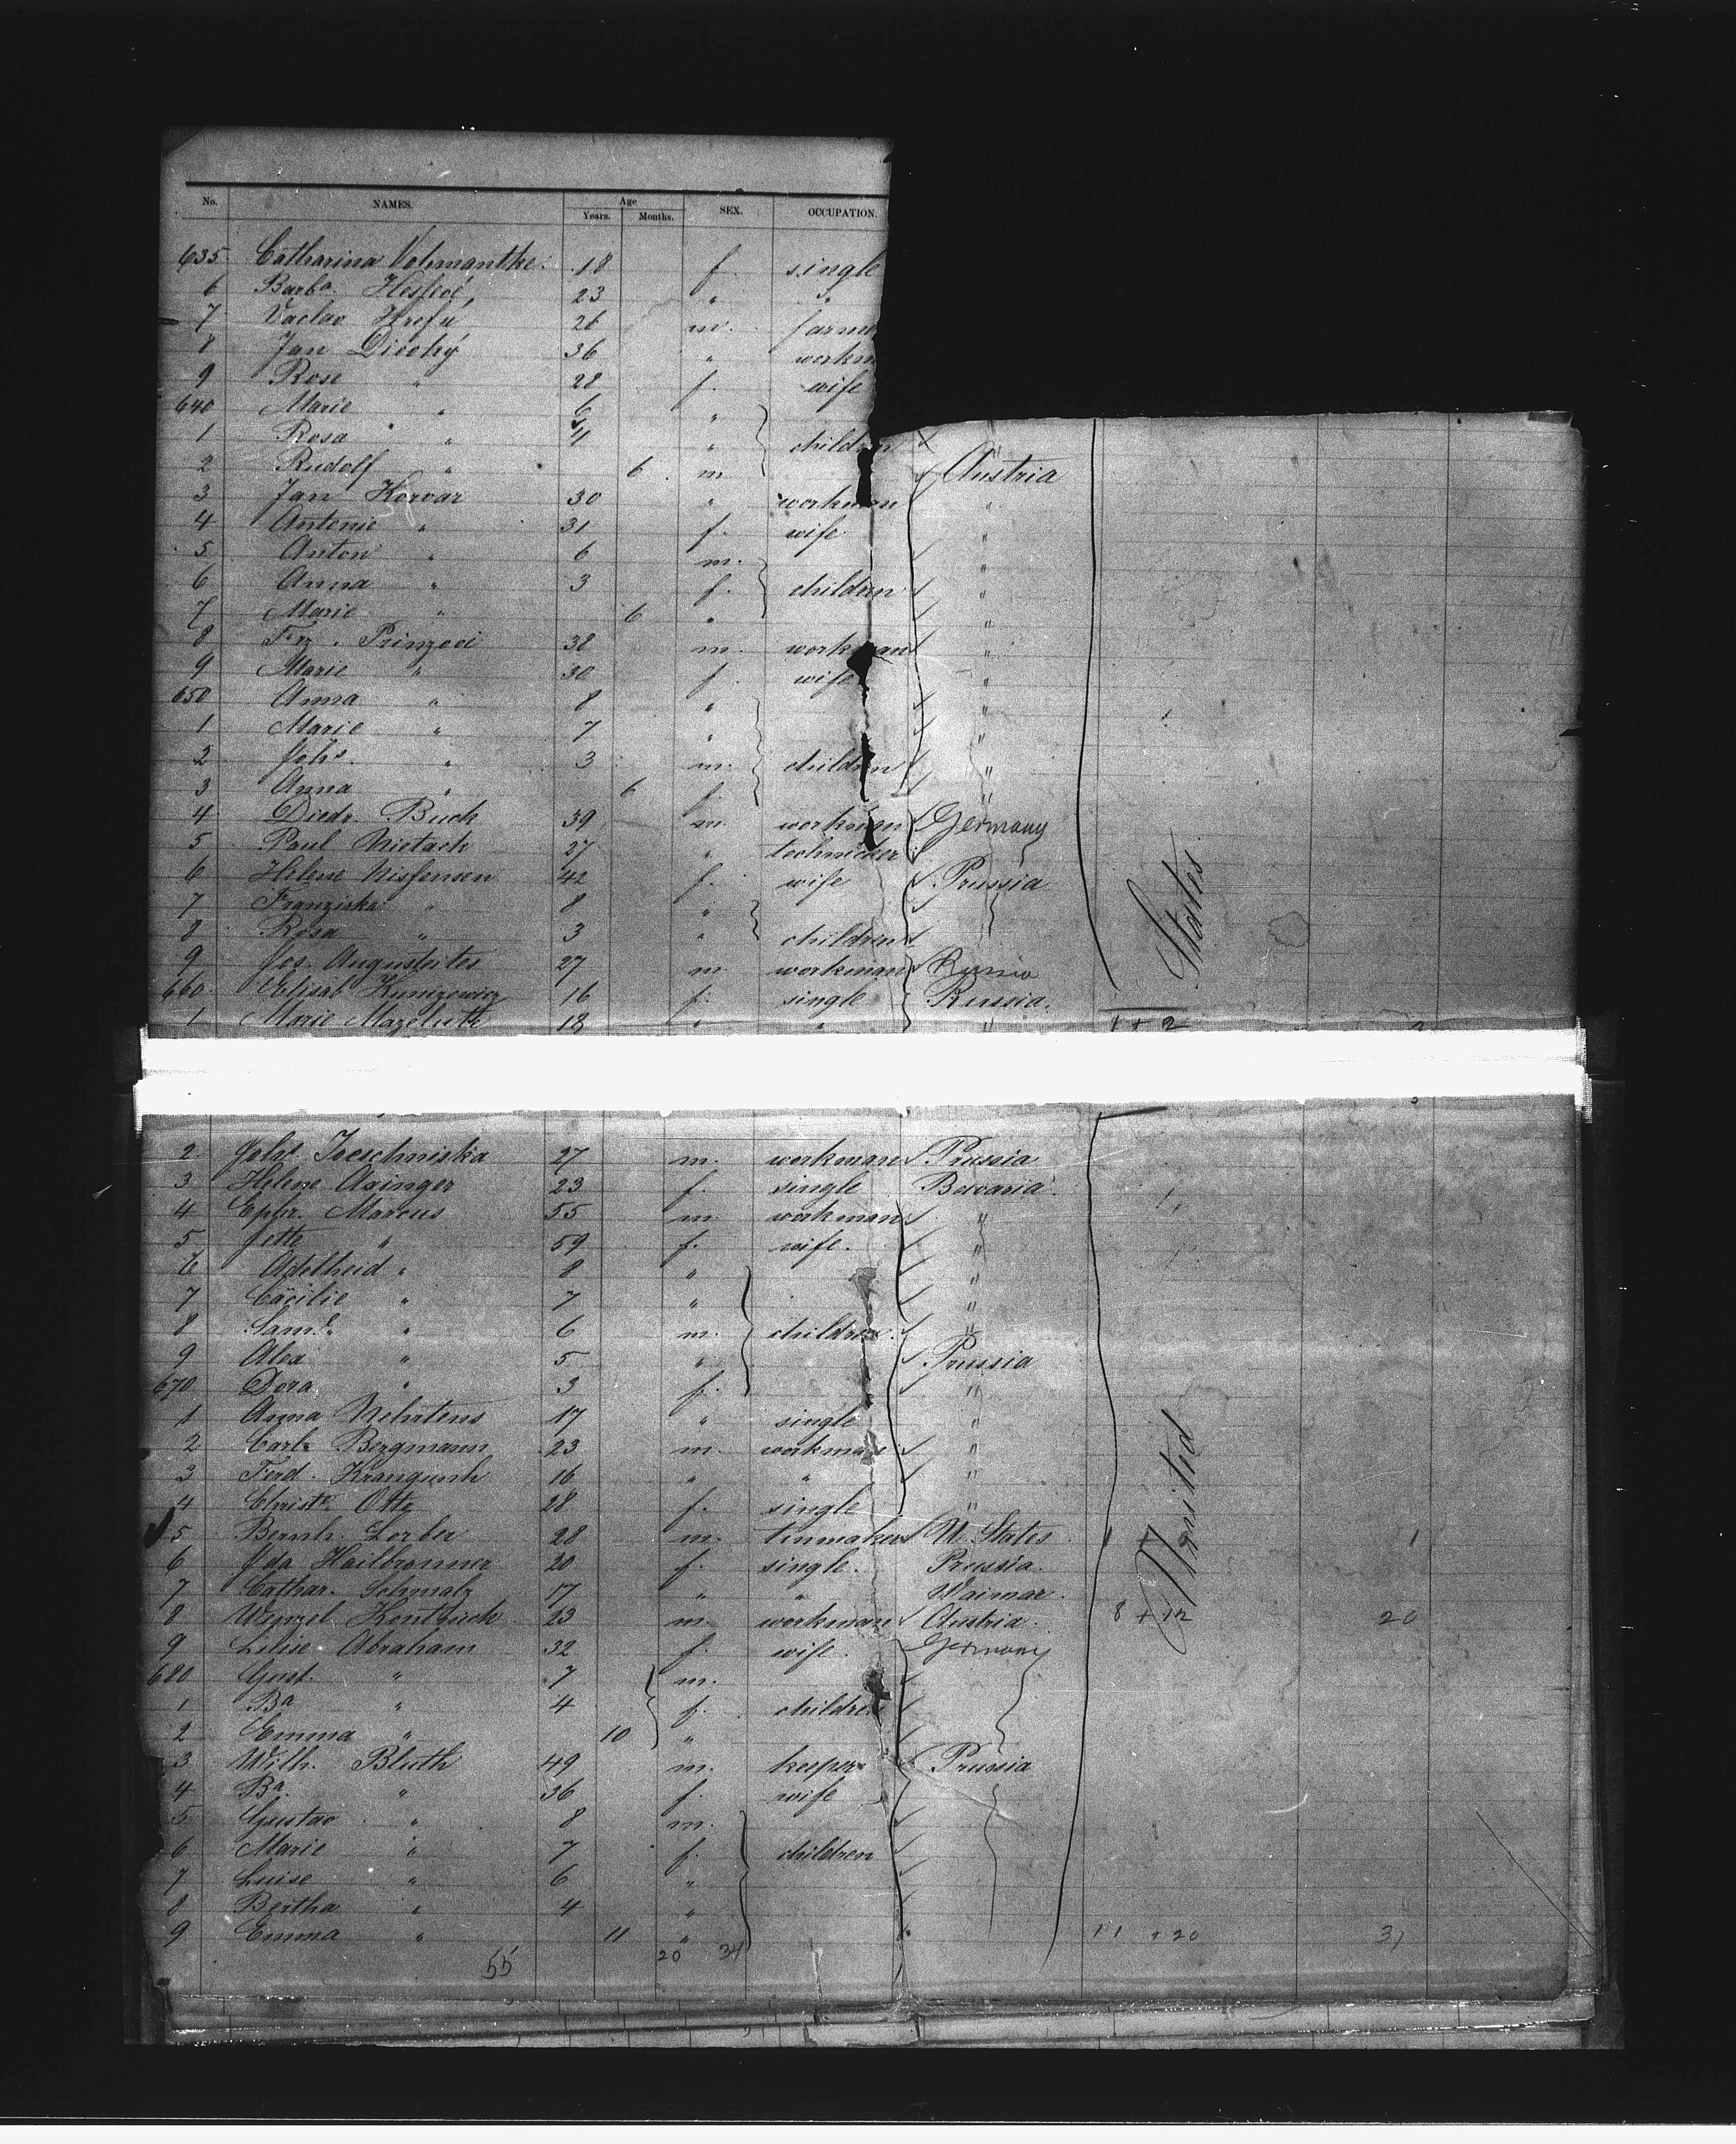 No. NAMES. Age Years. Months. SEX. OCCUPATION.
635 Catharina Vohmantke 18 f. single
6 Barba. 23 " "
7 Vaclav 26 m. farme
8 Jan 36 " workm
9 Rose " 28 f. wife
640 Marie " 6 "
1 Rosa " 4 " children
2 Rudolf " 6 m Austria
3 Jan Horvar 30 " workman "
4 Antonie " 31 f. wife "
5 Anton " 6 m. "
6 Anna " 3 f. children "
7 Marie " 6 " "
8 Frz. 38 m. workman "
9 Marie " 30 f. wife "
650 Anna " 8 " "
1 Marie " 7 " "
2 Johs. " 3 m. children "
3 Anna " 6 f. "
4 Diedr. Buck 39 m. workman Germany
5 Paul Nietack 27 " technicker
6 Helene 42 f. wife Prussia
7 Franziska " 8 "
8 Rosa " 3 " children
9 Jos. 27 m workman Russia
660 Elisab 16 f. single Russia.
1 Marie 18 " " "
1 + 2
States
2. Johs. 27 m. workman Prussia
3 Helene 23 f. single Bavaria
4 Ephr. Marcus 55 m workman "
5 Jette " 59 f. wife. "
6 Adelheid " 8 " "
7 Cäcilie " 7 " "
8 Saml. " 6 m. children "
9 Alex " 5 " Prussia
670 Dora " 3 f. "
1 Anna Nehrtens 17 " single "
2 Carl Bergmann 23 m. workman "
3 Ferd. 16 " " "
4 Christe. Otte 28 f. single "
5 Bernh. Lorber 28 m. tinmaker U. States 1 1
6 Ida Hailbronner 20 f. single. Prussia.
7 Cathar. Schmalz 17 " " Waimar.
8 Wenzel 23 m workman Austria. 8 + 12 20
9 Luise Abraham 32 f. wife. Germany
680 Gust. " 7 m.
1 Ba " 4 f. children
2 Emma " 10 "
3 Wilh. Bluth 49 m. keeper Prussia
4 Ba. " 36 f. wife
5 Gustav " 8 m.
6 Marie " 7 f. children
7 Luise " 6 "
8 Bertha " 4 "
9 Emma " 11 " 11 + 20 31
55 20 34
United